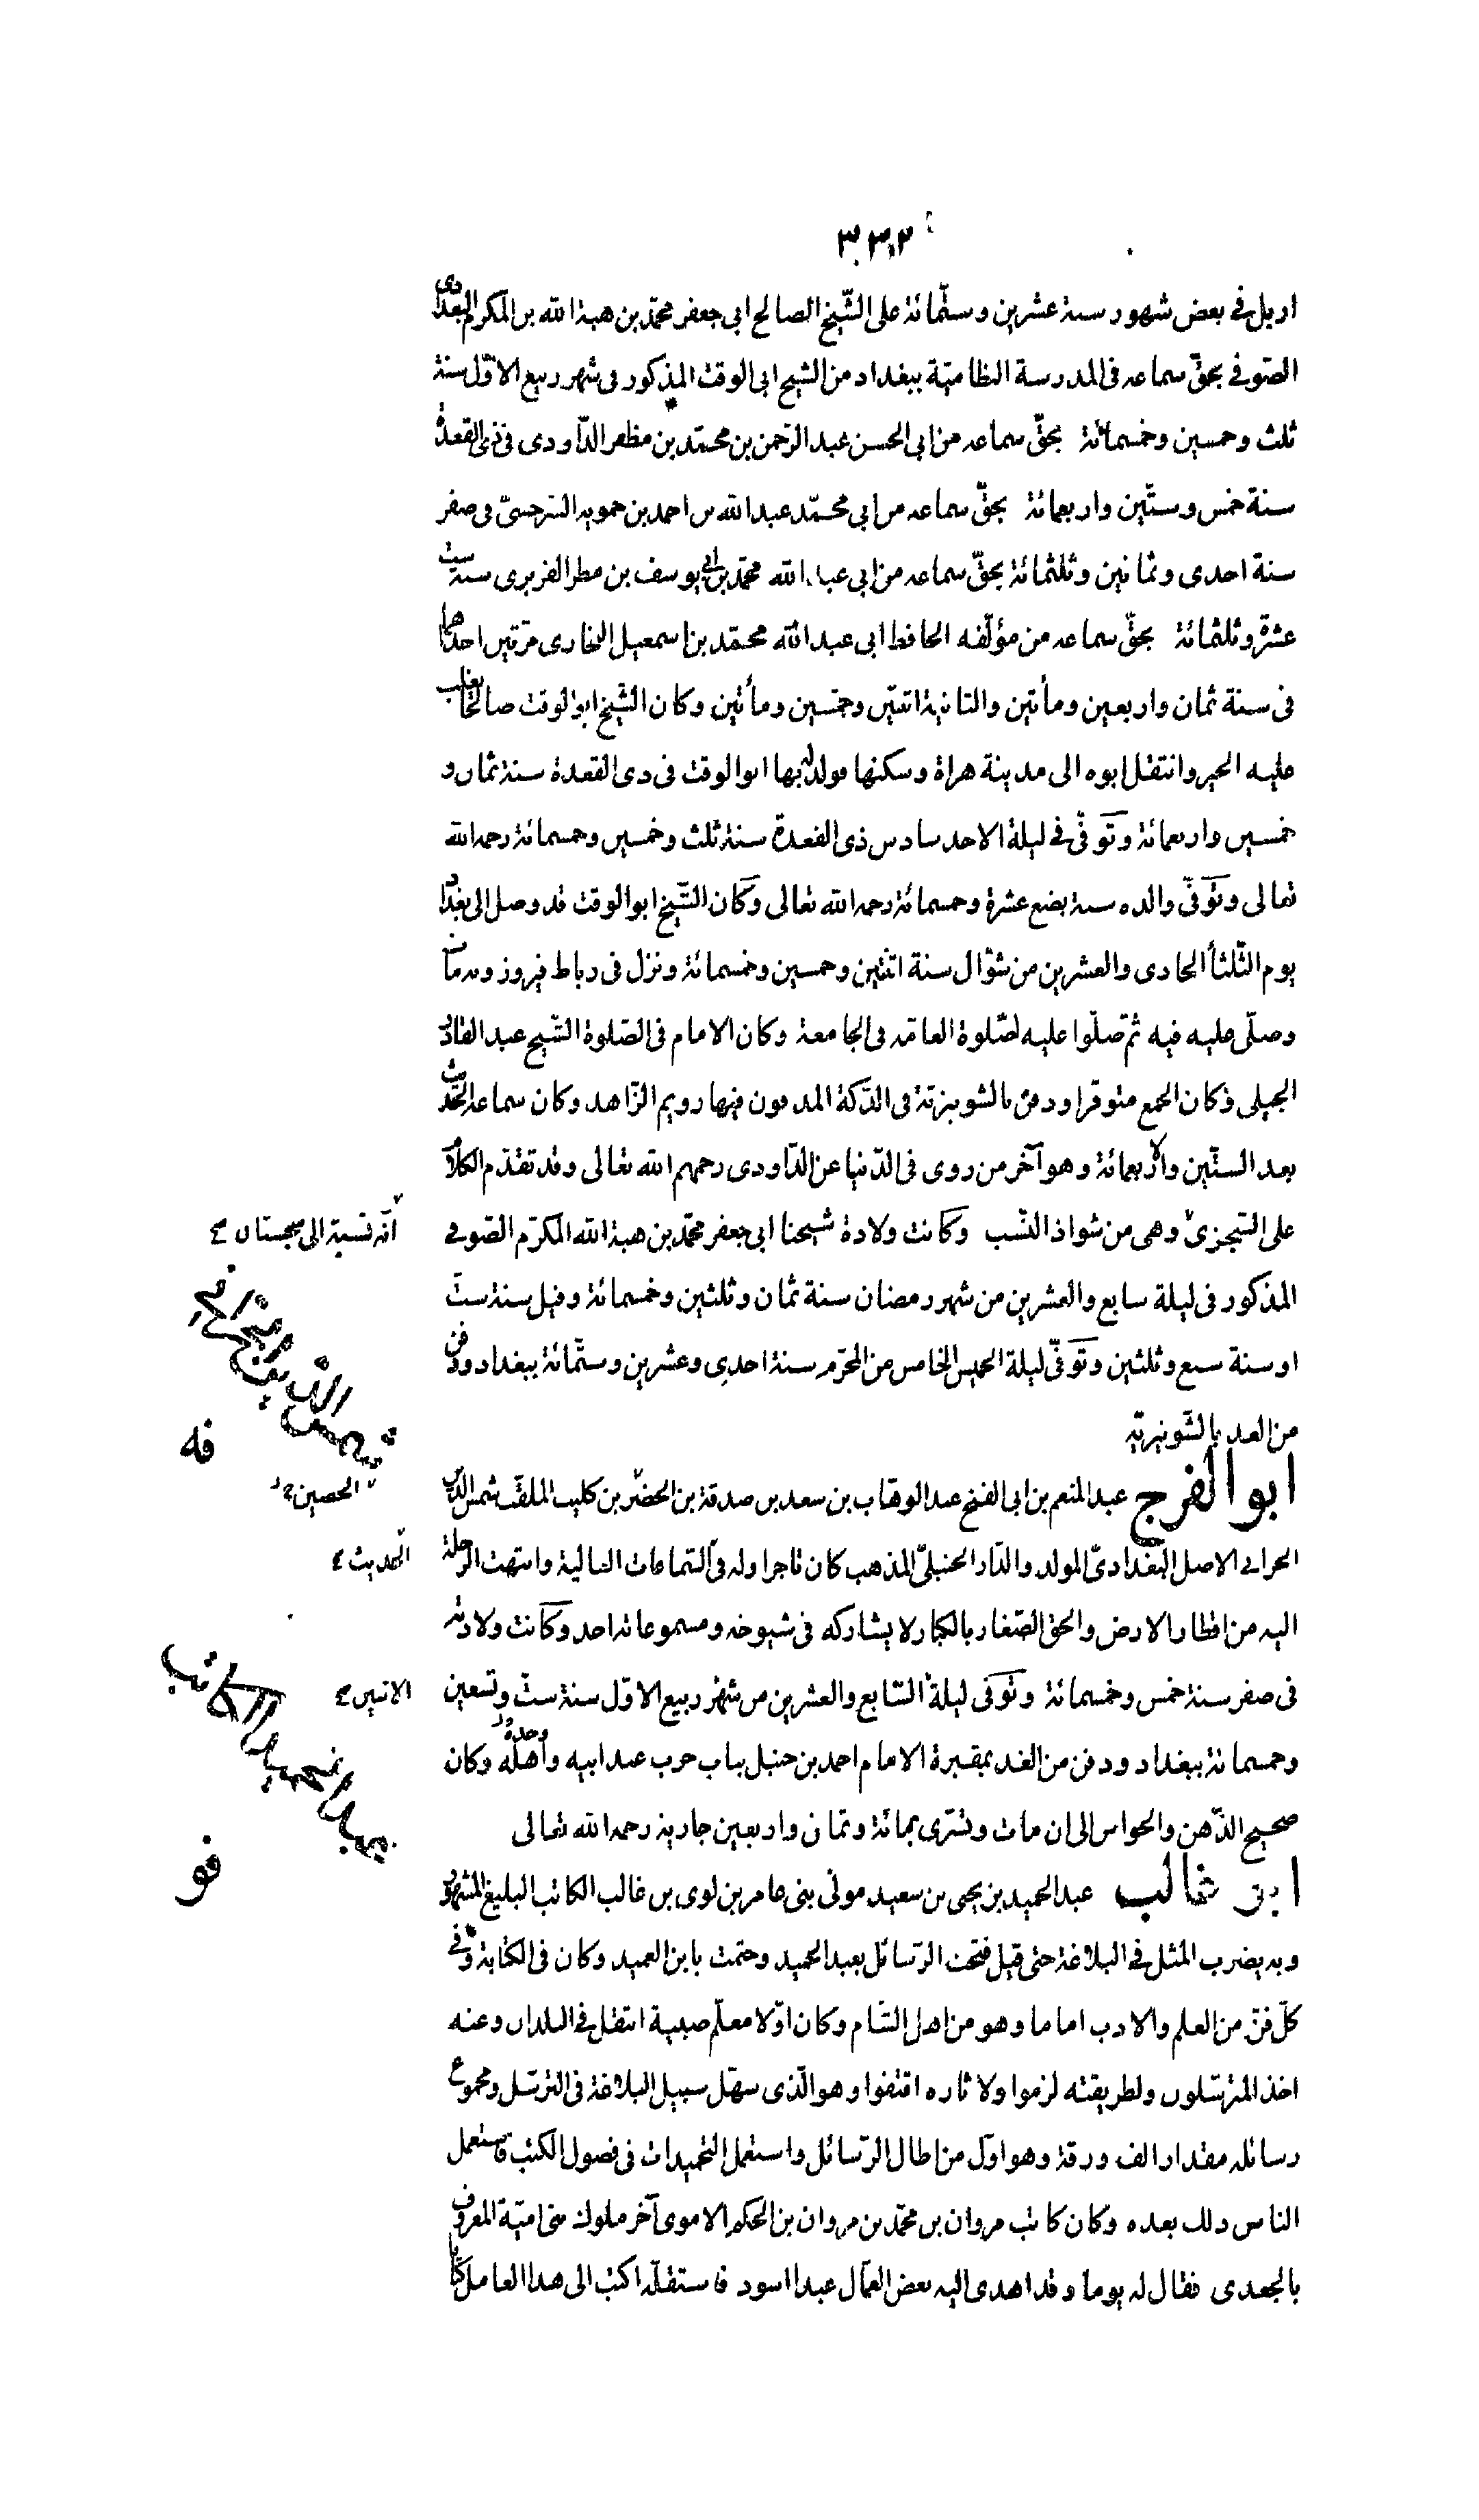 ٣٣٢
اربل في بعض شهور سنة عشرين وستمائة على الشّيخ الصالح ابى جعفر محمّد بن هبة الله بن المكرم البغدادى
الصّوفي بحقّ سماعه فى المدرسة النظاميّة ببغداد من الشيخ ابى الوقت المذكور فى شهر ربيع الاوّل سنة
ثلث وخمسين وخمسمائة بحقّ سماعه من ابى الحسن عبد الرّحمن بن محمّد بن مظفر الدّاودى فى ذى القعدة
سنة خمس وستّين واربعمائة بحقّ سماعه من ابى محمّد عبد الله بن احمد بن حمويه السّرخسىّ فى صفر
سنة احدى وثمانين وثلثمائة بحقّ سماعه من ابى عبد الله محمّد بن ابى يوسف بن مطر الفربرى سنة ست
عشرة وثلثمائة بحقّ سماعه من مؤلّفه الحافظ ابى عبد الله محمّد بن اسمعيل البخارى مرّتين احداهما
فى سنة ثمان واربعين ومأتين والثانية اثنتين وخمسين ومأتين وكان الشّيخ ابو الوقت صالحا يغلب
عليه الخير وانتقل ابوه الى مدينة هراة وسكنها فولد له بها ابو الوقت فى ذى القعدة سنة ثمان و
خمسين واربعمائة وتوفّى في ليلة الاحد سادس ذى القعدة سنة ثلث وخمسين وخمسمائة رحمه الله
تعالى وتوفّى والده سنة بضع عشرة وخمسمائة رحمه الله تعالى وكان الشّيخ ابو الوقت قد وصل الى بغداد
يوم الثّلثأ الحادى والعشرين من شوّال سنة اثنتين وخمسين وخمسمائة ونزل فى رباط فيروز وبه مات
وصلّى عليه فيه ثمّ صلّوا عليه الصّلوة العامّه فى الجامعة وكان الامام فى الصّلوة الشّيخ عبد القادر
الجيلى وكان الجمع متوفّرا ودفن بالشونيزيّة فى الدّكة المدفون فيها رويم الزّاهد وكان سماعه الحديث
بعد الستّين والاربعمائة وهو آخر من روى فى الدّنيا عن الدّاودى رحمهم الله تعالى وقد تقدّم الكلام
على السّجزىّ وهى من شواذ النّسب وكانت ولادة شيخنا ابى جعفر محمّد بن هبة الله المكرّم الصّوفي
انّه نسبة الى سجستان
المذكور فى ليلة سابع والعشرين من شهر رمضان سنة ثمان وثلثين وخمسمائة وقيل سنة ستّ
او سنة سبع وثلثين وتوفّى ليلة الخميس الخامس من المحرّم سنة احدى وعشرين وستّمائة ببغداد ودفن
من الغد بالشّونيزيّة
شمس الدّين الحرّانى
قه
ابو الفرج عبد المنعم بن ابى الفتح عبد الوهّاب بن سعد بن صدقة بن الخضر بن كليب الملقّب شمس الدّين
الحصين
الحرانى الاصل البغدادىّ المولد والدّار الحنبلىّ المذهب كان تاجرا وله فى السّماعات العالية وانتهت الرّحلة
الحديث
اليه من اقطار الارض والحق الصّغار بالكبار لا يشاركه فى شيوخه ومسموعاته احد وكانت ولادته
فى صفر سنة خمس وخمسمائة وتوفّى ليلة السّابع والعشرين من شهر ربيع الاوّل سنة ستّ وتسعين
الاثنين
وخمسمائة ببغداد ودفن من الغد بمقبرة الامام احمد بن حنبل بباب حرب عند ابيه واهله وكان
صحيح الذّهن والحواس الى ان مات وتسّرى بمائة وثمان واربعين جارية رحمه الله تعالى
عبد الحميد الكاتب
قو
ابن غالب عبد الحميد بن يحيى بن سعيد مولى بنى عامر بن لوى بن غالب الكاتب البليغ المشهور
وبه يضرب المثل في البلاغة حتى قيل فتحت الرّسائل بعبد الحميد وختمت بابن العميد وكان فى الكتابة وفي
كلّ فنّ من العلم والادب اماما وهو من اهل الشّام وكان اوّلا معلّم صبية انتقل في البلدان وعنه
اخذ المترسّلون ولطريقته لزموا ولاثاره اقتفوا وهو الّذى سهّل سبيل البلاغة فى الترسّل ومجموع
رسائله مقدار الف ورقة وهو اوّل من اطال الرّسائل واستعمل التّحميدات فى فصول الكتب فاستعمل
الناس ذلك بعده وكان كاتب مروان بن محمّد بن مروان بن الحكم الاموى آخر ملوك بنى اميّة المعروف
بالجعدى فقال له يوما وقد اهدى اليه بعض العمّال عبدا اسود فاستقلّه اكتب الى هذا العامل كتابا